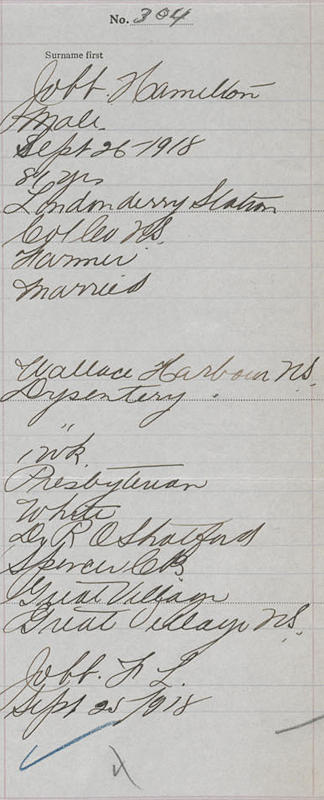 No. 304
Surname first
Jobb. Hamelton
Male.
Sept 26-1918
84 yrs
Londonderry Station
Col Co NS.
Farmer
Married
Wallace Harbour NS.
Dysentery.
"
1 wk.
Presbyterian
White
Dr R O Shatford
Spencer CB
Great Village
Great Village NS.
Jobb. F L.
Sept 25/918